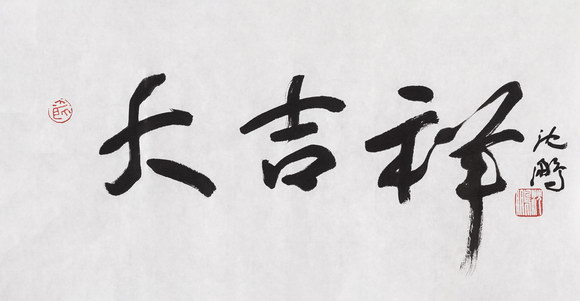 大吉祥
沈鹏